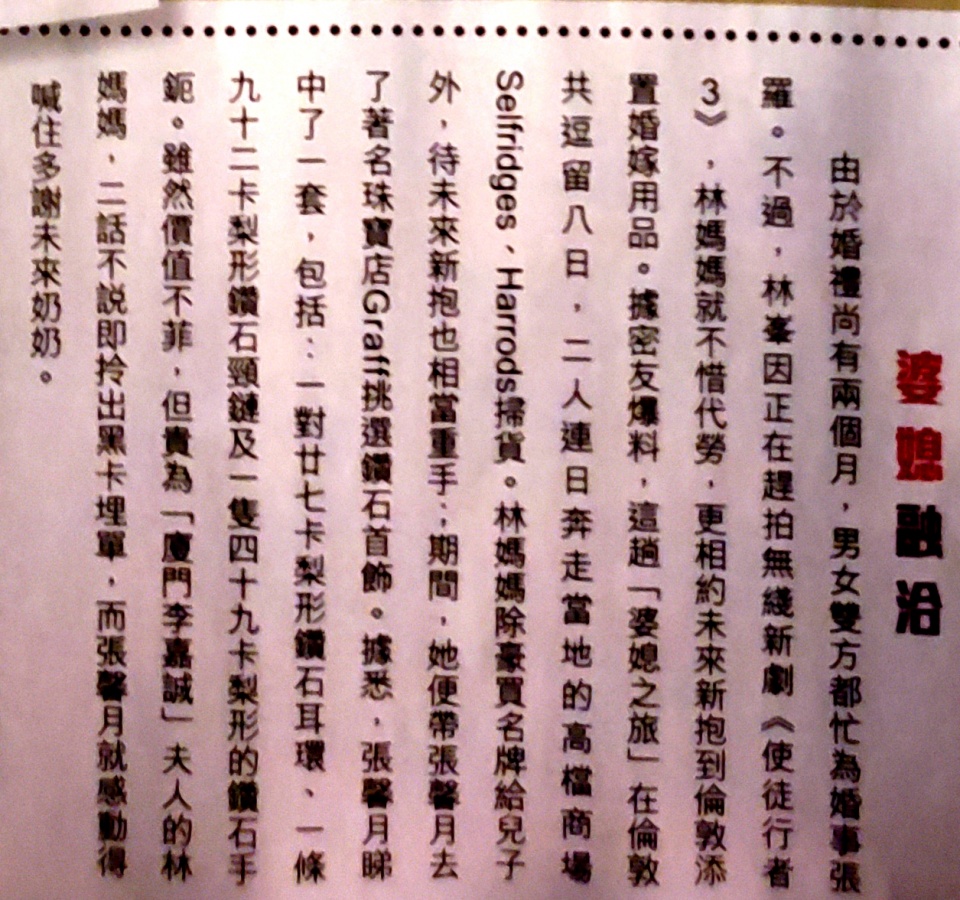 婆媳融洽
由於婚禮尚有兩個月，男女雙方都忙為婚事張
羅。不過，林峯因正在趕拍無綫新劇《使徒行者
3》，林媽媽就不惜代勞，更相約未來新抱到倫敦添
置婚嫁用品。據密友爆料，這趟「婆媳之旅」在倫敦
共逗留八日，二人連日奔走當地的高檔商場
Selfridges、Harrods掃貨。林媽媽除豪買名牌給兒子
外，待未來新抱也相當重手；期間，她便帶張馨月去
了著名珠寶店Graff挑選鑽石首飾。據悉，張馨月睇
中了一套，包括：一對廿七卡梨形鑽石耳環、一條
九十二卡梨形鑽石頸鏈及一隻四十九卡梨形的鑽石手
鈪。雖然價值不菲，但貴為「廈門李嘉誠」夫人的林
媽媽，二話不說即拎出黑卡埋單，而張馨月就感動得
喊住多謝未來奶奶。